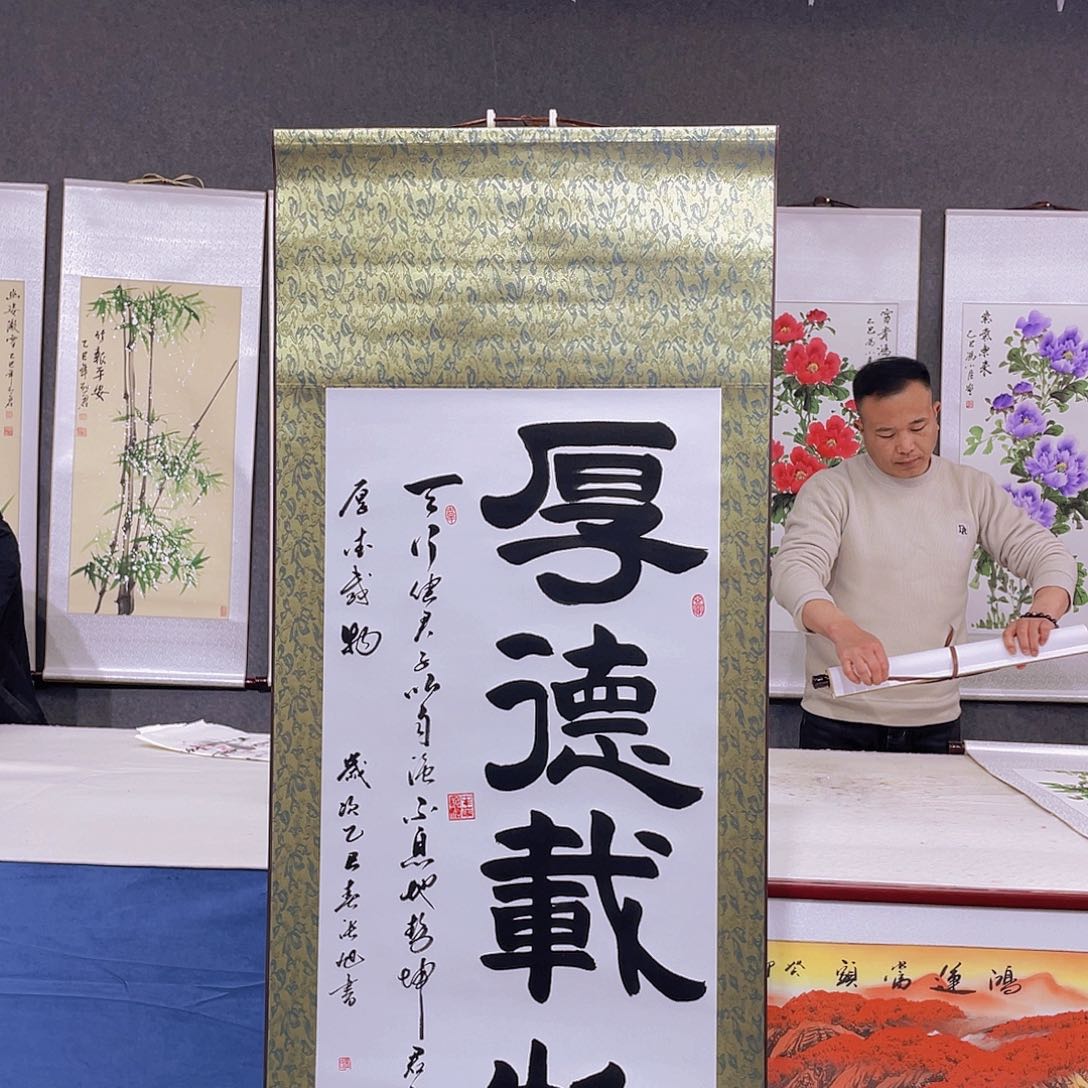 厚德載物
天行健君子以自强不息地势坤君
厚德載物
歲次乙巳春张旭書
竹報平安
乙巳年
富貴
乙巳
紫氣東來
鴻運當頭
癸卯